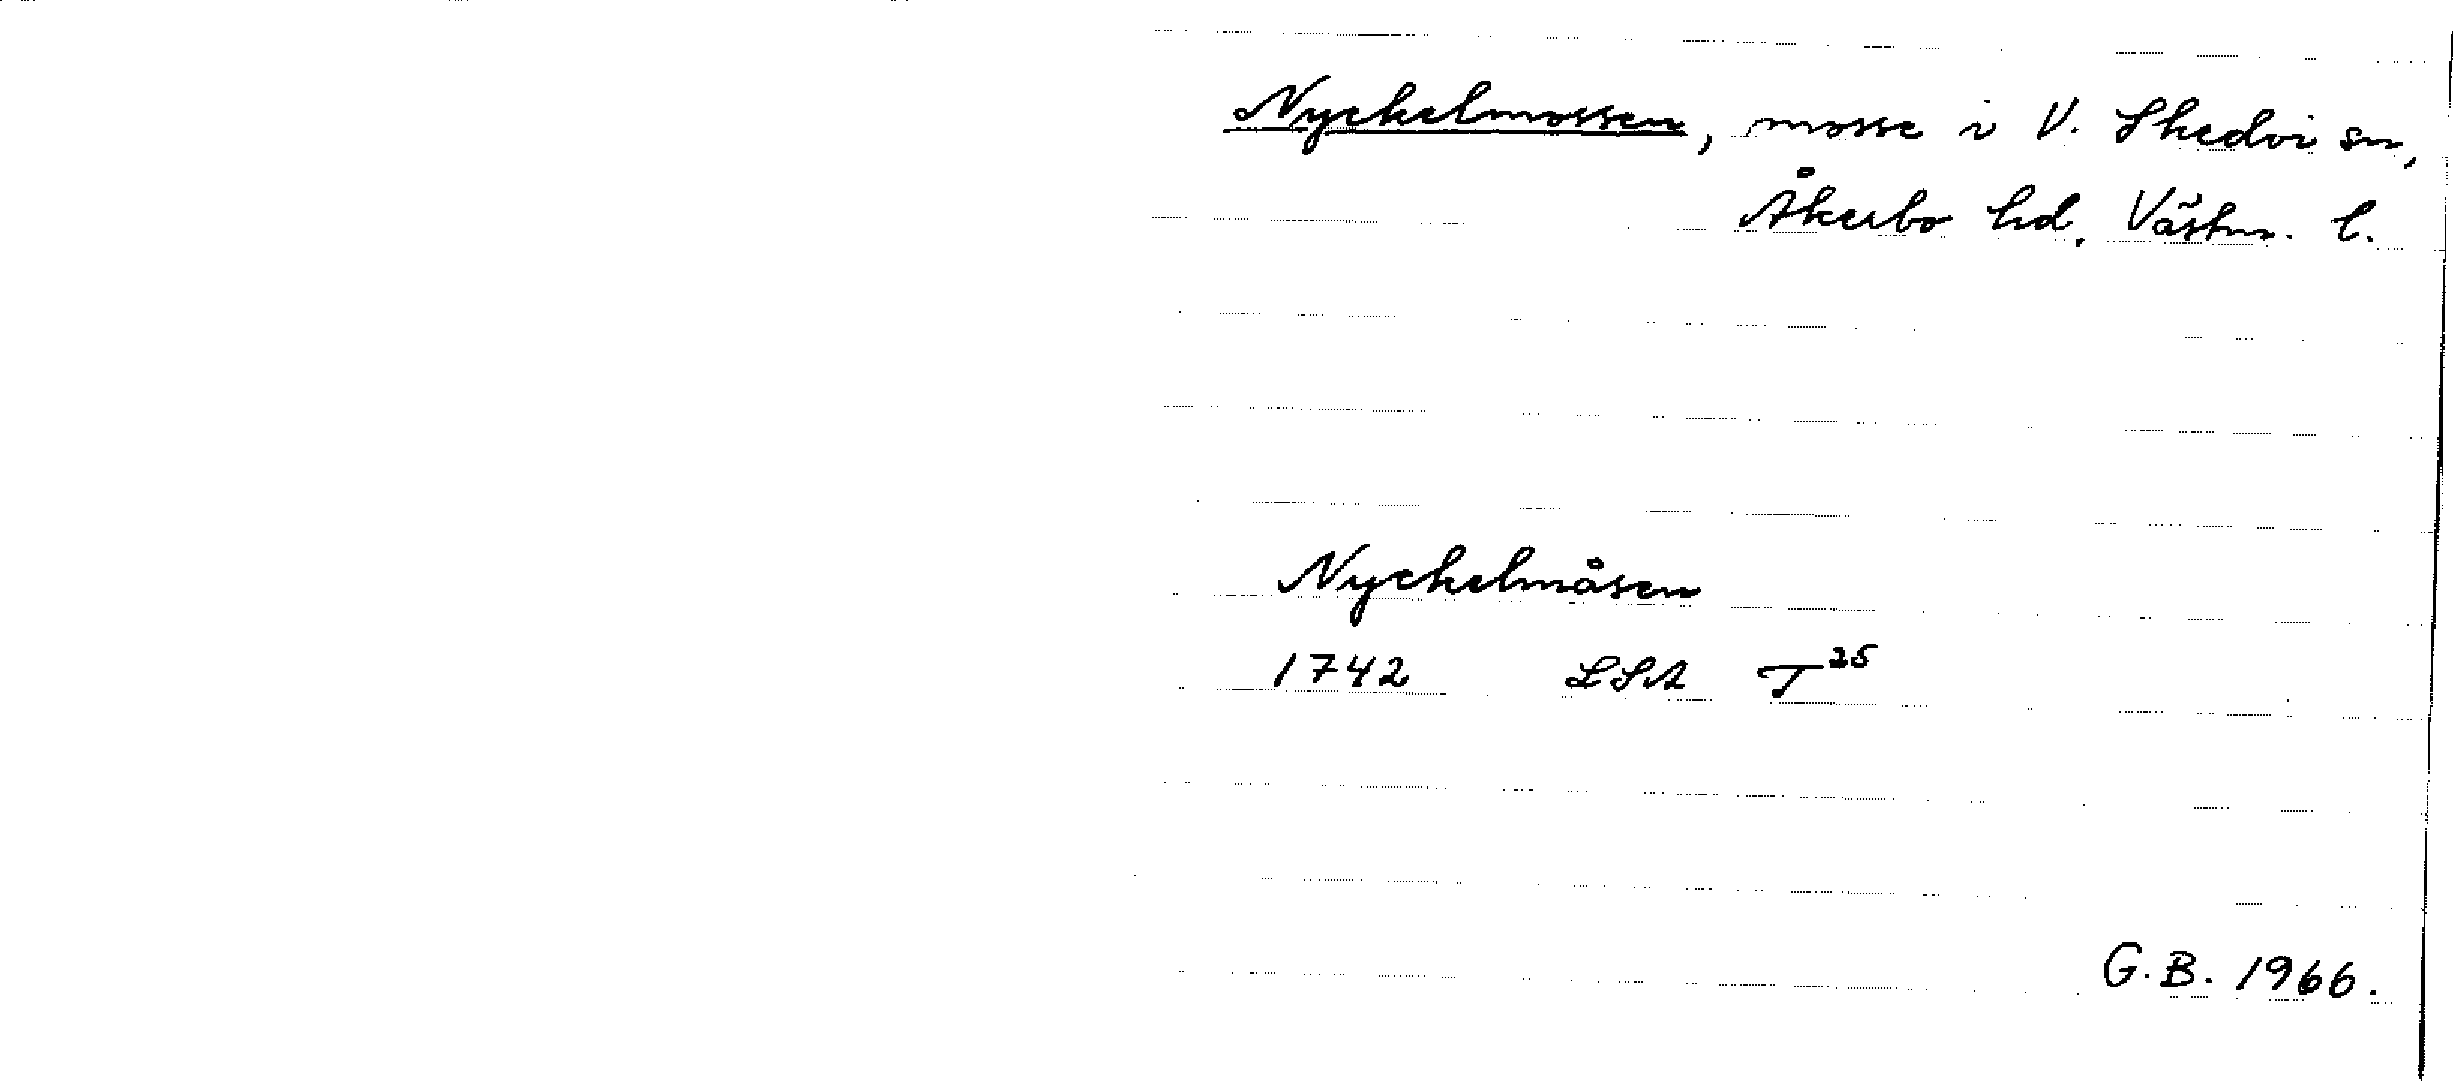 Nyckelmossen, mosse i V. Skedvi sn,
Åkerbo hd, Västm. l.
Nyckelmåsen
1742 LSA T²⁵
G.B. 1966.